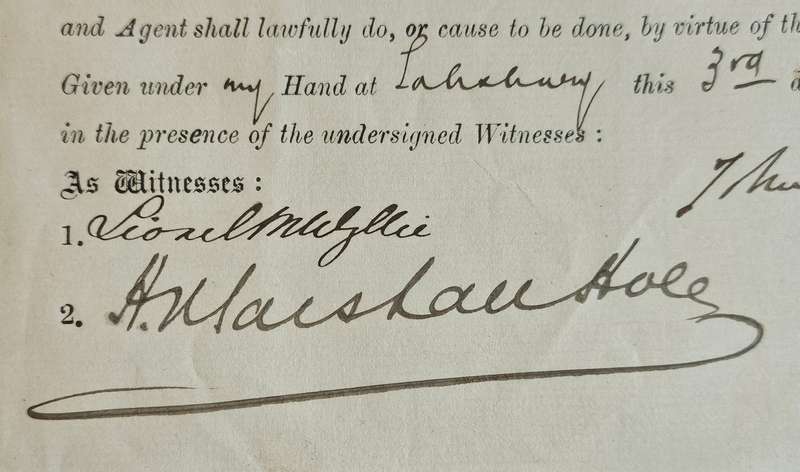 and Agent shall lawfully do, or cause to be done, by virtue of th
Given under my Hand at Salisbury this 3rd
in the presence of the undersigned Witnesses :
As Witnesses :
1. Lionel M Wyllie
2. H. Marshall Hole